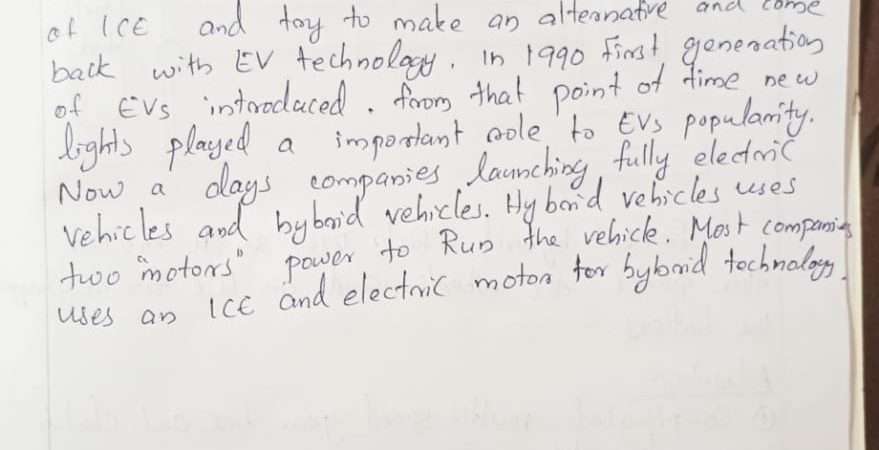 of ICE and try to make an alternative and come
back with EV technology. in 1990 first generation
of EVs introduced. from that point of time new
lights played a important role to EVs popularity.
Now a days companies launching fully electric
vehicles and hybrid vehicles. Hybrid vehicles uses
two "motors" power to Run the vehicle. Most companies
uses an ICE and electric motor for hybrid technology.